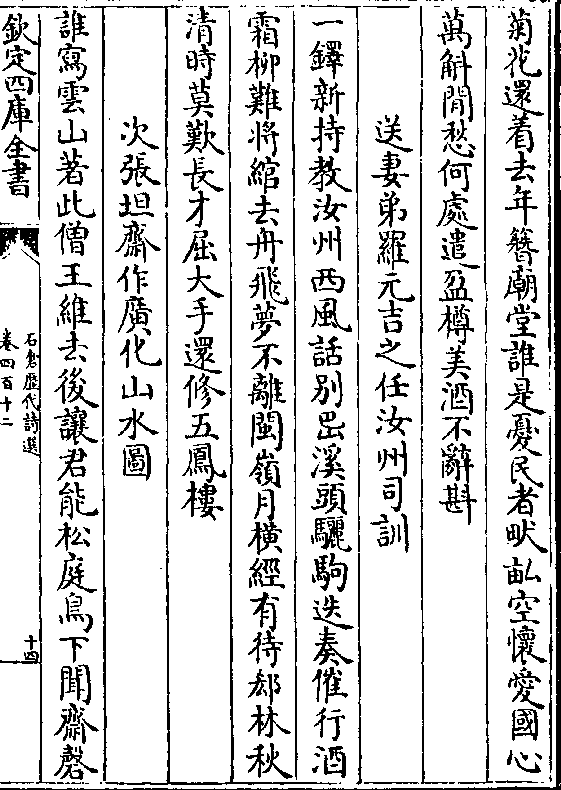 菊花還着去年簪廟堂誰是憂民者畎畝空懷愛國心
萬斛閒愁何處遣盈樽美酒不辭斟
送妻弟羅元吉之任汝州司訓
一鐸新持教汝州西風話別岊溪頭驪駒迭奏催行酒
霜柳難將綰去舟飛夢不離閩嶺月橫經有待郄林秋
清時莫歎長才屈大手還修五鳳樓
次張坦齋作廣化山水圖
誰寫雲山著此僧王維去後讓君能松庭鳥下聞齋磬
欽定四庫全書
石倉歷代詩選
卷四百十二
十四